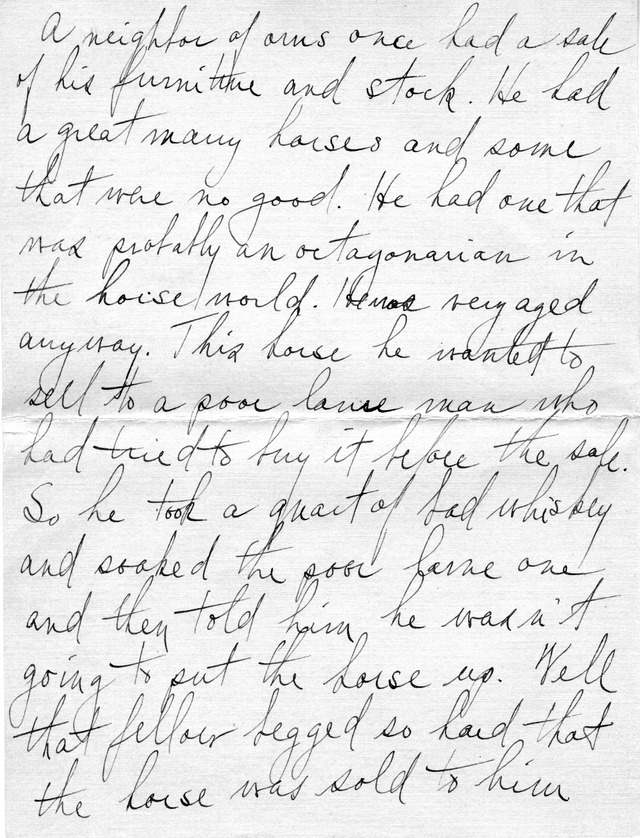 A neighbor of ours once had a sale
of his furniture and stock. He had
a great many horses and some
that were no good. He had one that
was probably an octagonarian in
the horse world. He was very aged
anyway. This horse he wanted to
sell to a poor lame man who
had tried to buy it before the sale.
So he took a quart of bad whiskey
and soaked the poor lame one
and then told him he wasn't
going to put the horse up. Well
that fellow begged so hard that
the horse was sold to him